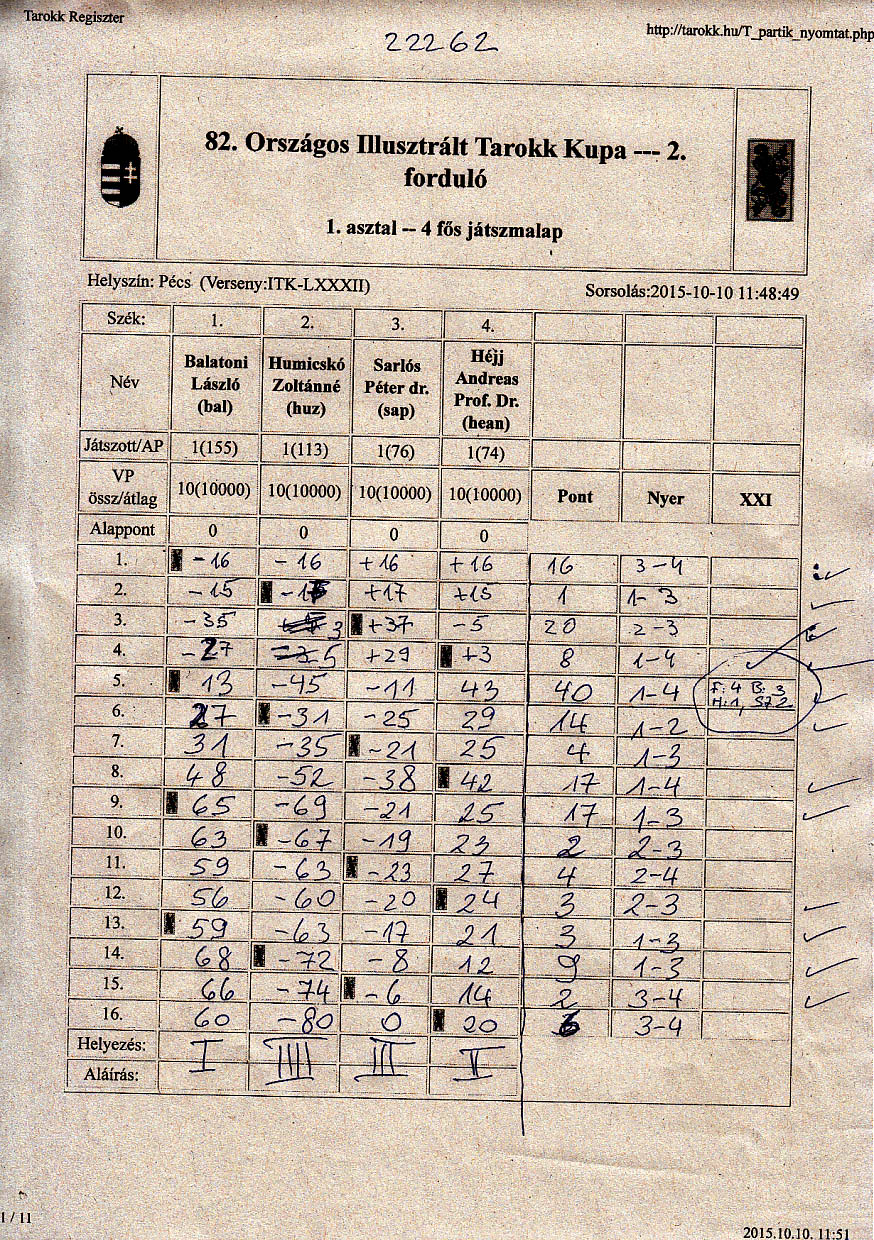 Tarokk Regiszter
http://tarokk.hu/T_partik_nyomtat.php
22262
82. Országos Illusztrált Tarokk Kupa --- 2.
forduló
1. asztal -- 4 fős játszmalap
Helyszín: Pécs (Verseny:ITK-LXXXII) Sorsolás:2015-10-10 11:48:49
Szék: 1. 2. 3. 4.
Név Balatoni László (bal) Humicskó Zoltánné (huz) Sarlós Péter dr. (sap) Héjj Andreas Prof. Dr. (hean)
Játszott/AP 1(155) 1(113) 1(76) 1(74)
VP össz/átlag 10(10000) 10(10000) 10(10000) 10(10000) Pont Nyer XXI
Alappont 0 0 0 0
1. -16 -16 +16 +16 16 3-4
2. -15 +17 +15 1 1-3
3. -35 3 +37 -5 20 2-3
4. -27 5 +29 +3 8 1-4
5. 13 -45 -11 43 40 1-4 F:4 B:3
H:1,
6. 27 -31 -25 29 14 1-2
7. 31 -35 -21 25 4 1-3
8. 48 -52 -38 42 17 1-4
9. 65 -69 -21 25 17 1-3
10. 63 -67 -19 23 2 2-3
11. 59 -63 -23 27 4 2-4
12. 56 -60 -20 24 3 2-3
13. 59 -63 -17 21 3 1-3
14. 68 -72 -8 12 9 1-3
15. 66 -74 -6 14 2 3-4
16. 60 -80 0 20 6 3-4
Helyezés: I IIII III II
Aláírás:
1 / 11
2015.10.10. 11:51